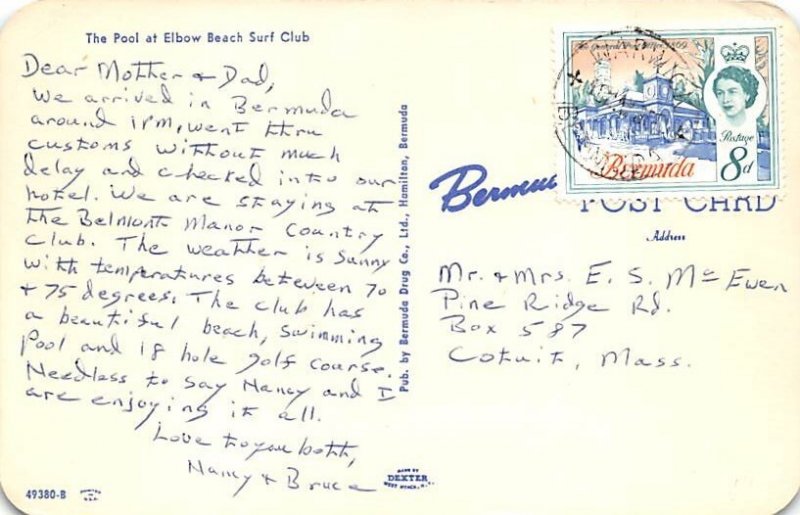 The Pool at Elbow Beach Surf Club
Dear Mother + Dad,
We arrived in Bermuda
around 1PM, went thru
customs without much
delay and checked into our
hotel. We are staying at
the Belmont Manor Country
Club. The weather is Sunny
with temperatures between 70
+ 75 degrees. The club has
a beautiful beach, swimming
pool and 18 hole golf course.
Needless to say Nancy and I
are enjoying it all.
Love to you both,
Nancy + Bruce
49380-B
Pub. by Bermuda Drug Co., Ltd., Hamilton, Bermuda
MADE BY
DEXTER
WEST NYACK, N.Y.
WARWICK
Bermuda
Postage
8d
POST CARD
Address
Mr. + Mrs. E. S. McEwen
Pine Ridge Rd.
Box 587
Cotuit, Mass.